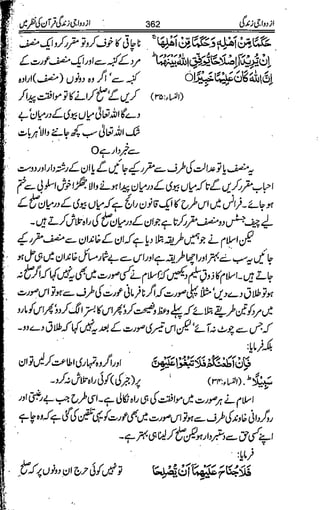 ازدواجی زندگی 362 ازدواجی زندگی قرآن کی نظر میں
حَكَمًا مِّنْ اَهْلِهٖ وَحَكَمًا مِّنْ اَهْلِهَا ۚ
اِنْ يُّرِيْدَآ اِصْلَاحًا يُّوَفِّقِ اللّٰهُ بَيْنَهُمَا ۗ
اِنَّ اللّٰهَ كَانَ عَلِيْمًا خَبِيْرًا ۝
(النساء: ۳۵)
ناچاقی کا خوف کرو تو مقرر کرو ایک منصف
مرد کے کنبہ سے اور ایک منصف عورت کے
کنبہ سے، اگر وہ دونوں (منصف) ارادہ
کریں گے صلح کرانے کا تو موافقت پیدا کر
دے گا اللہ تعالیٰ میاں بیوی کے درمیان بے
شک اللہ تعالیٰ سب کچھ جاننے والا ہر بات
سے خبردار ہے ۝
یہ منصف یا تو عدالت کی طرف سے مقرر کیے جائیں گے یا ان کے رشتہ دار اور دوست
احباب مقرر کریں گے تاکہ میاں بیوی کے درمیان پیدا ہونے والا جھگڑا خوش اسلوبی سے ختم
ہو جائے۔ فرانس میں اس طرح کا قانون رائج ہے کہ میاں بیوی کے درمیان صلح کے
لیے چیف جسٹس دو منصف مقرر کرتا ہے جو ان کے درمیان صلح کی راہ تلاش کرتے ہیں۔
لیکن اسلام نے جو ہمیں طریقہ بتلا دیا ہے کہ ان کے خاندان سے منصف مقرر کیے
جائیں یہ سب سے بہتر اور اچھا طریقہ ہے اور اس سے بے شمار مسائل خاندان میں ہی حل ہو
جاتے ہیں۔ اسلام کا ذوق سلیم دیکھیں کہ اسلام نے کسی صورت میں بھی یہ نہیں کہا کہ اگر صلح نہ
ہو تو طلاق دے دیں، مثلاً پہلی صورت کہ اگر نافرمانی عورت کی طرف سے ہو تو اس صورت
میں مرد کو تین طریقے بتلائے کہ پہلے وعظ و نصیحت کرو پھر اس کا بستر الگ کر دو پھر اس کو مارو
کہ جس سے چوٹ نہ آئے، لیکن اس تیسری صورت کے بعد یہ نہیں کہا کہ طلاق دے دو۔
بلکہ فرمایا:
فَاِنْ اَطَعْنَكُمْ فَلَا تَبْغُوْا عَلَيْهِنَّ
سَبِيْلًا ۗ (النساء: ۳۴)
اور اگر وہ تمہاری اطاعت کر لیں تو ان
پر (جبر کی) کوئی راہ تلاش نہ کرو۔
اسلام نے ہر صورت میں موافقت کی ہی راہ نکالی ہے۔ اسی طرح جب بے رغبتی اور
روگردانی خاوند کی طرف سے ہو تو اس صورت میں بھی عورت کو یہی تلقین کی گئی ہے کہ وہ چاہے
اپنے کسی حق سے دستبردار ہو لیکن صلح کر لینا ہی بہتر ہے۔
فرمایا:
فَلَا جُنَاحَ عَلَيْهِمَآ اَنْ يُّصْلِحَا
تو نہیں کوئی حرج ان دونوں پر کہ صلح